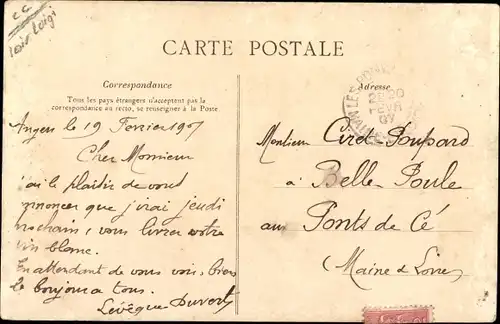 CARTE POSTALE
Correspondance
Tous les pays étrangers n'acceptent pas la
correspondance au recto, se renseigner à la Poste.
Adresse
Angers le 19 Fevrier 1907
Cher Monsieur
j'ai le plaisir de vous
annoncer que j'irai jeudi
prochain, vous livrer votre
vin blanc.
En attendant de vous voir, bien
le bonjour a tous.
Lévêque Duverd
Monsieur Ciret Poupard
à Belle-Poule
aux Ponts de Cé
Maine & Loire
20
07